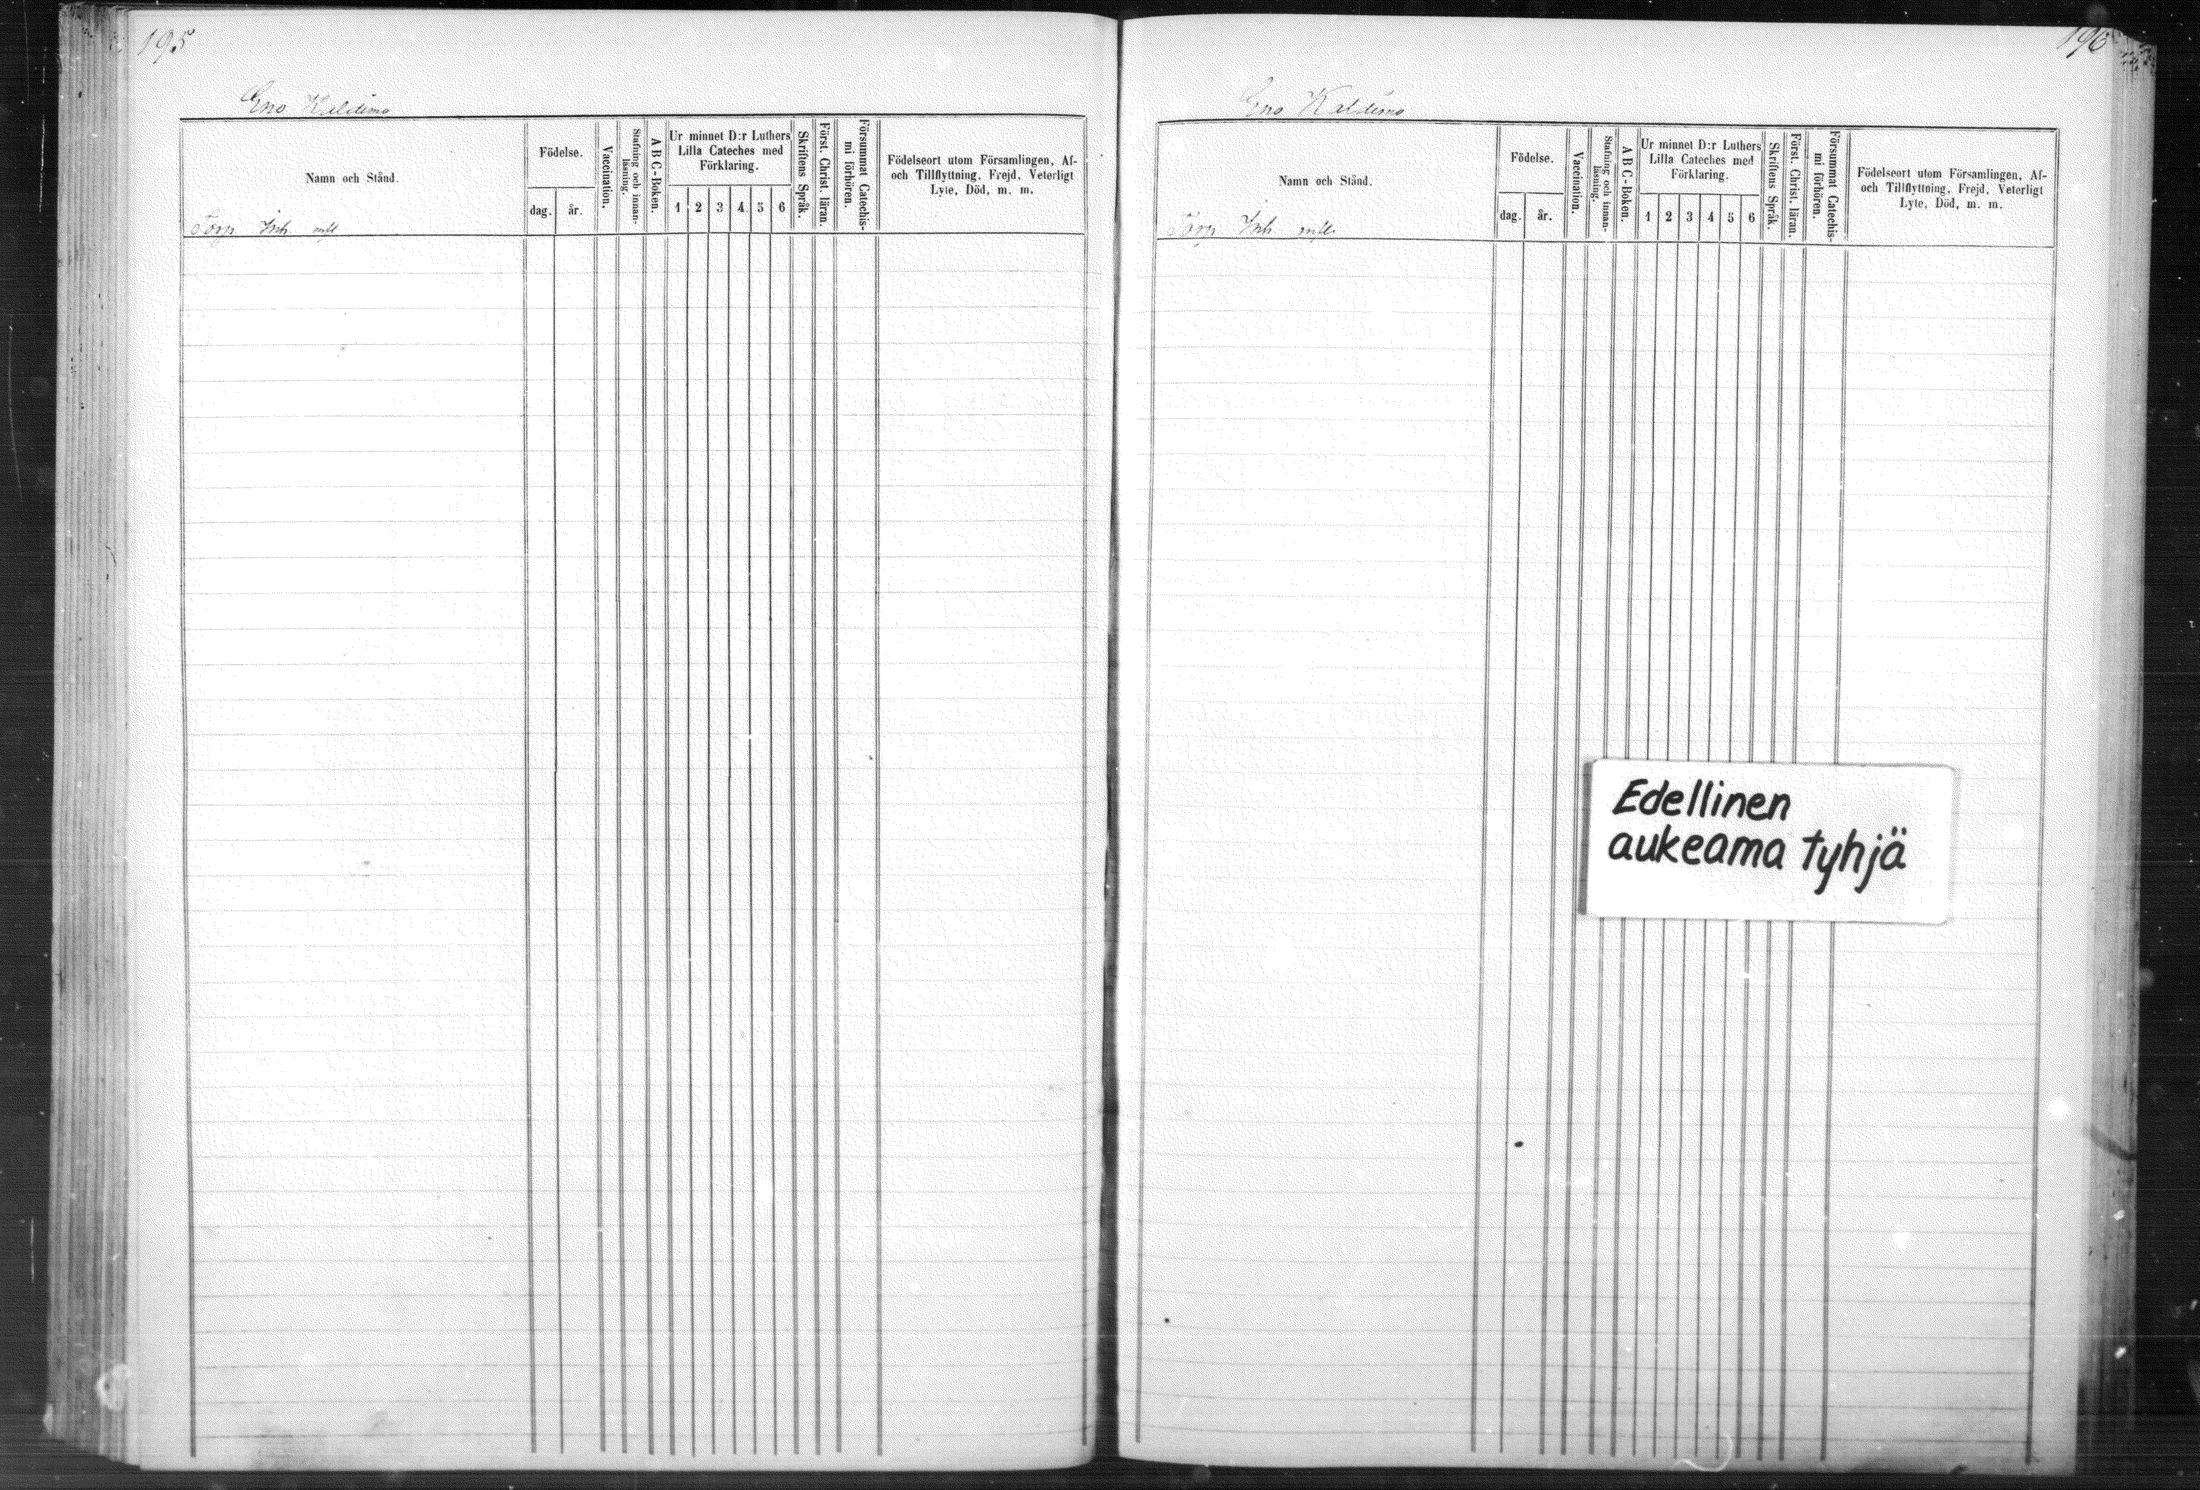 195
Eno Kaltimo
Namn och Stånd.
Födelse.
dag.
år.
Vaccination.
Stafning och innan-
läsning.
A B C-Boken.
Ur minnet D:r Luthers
Lilla Cateches med
Förklaring.
1 2 3 4 5 6
Skriftens Språk.
Först. Christ. läran.
Försummat Catechis-
mi förhören.
Födelseort utom Församlingen, Af-
och Tillflyttning, Frejd, Veterligt
Lyte, Död, m. m.
Torp Inh
196
Eno Kaltimo
Namn och Stånd.
Födelse.
dag.
år.
Vaccination.
Stafning och innan-
läsning.
A B C-Boken.
Ur minnet D:r Luthers
Lilla Cateches med
Förklaring.
1 2 3 4 5 6
Skriftens Språk.
Först. Christ. läran.
Försummat Catechis-
mi förhören.
Födelseort utom Församlingen, Af-
och Tillflyttning, Frejd, Veterligt
Lyte, Död, m. m.
Torp Inh
Edellinen
aukeama tyhjä